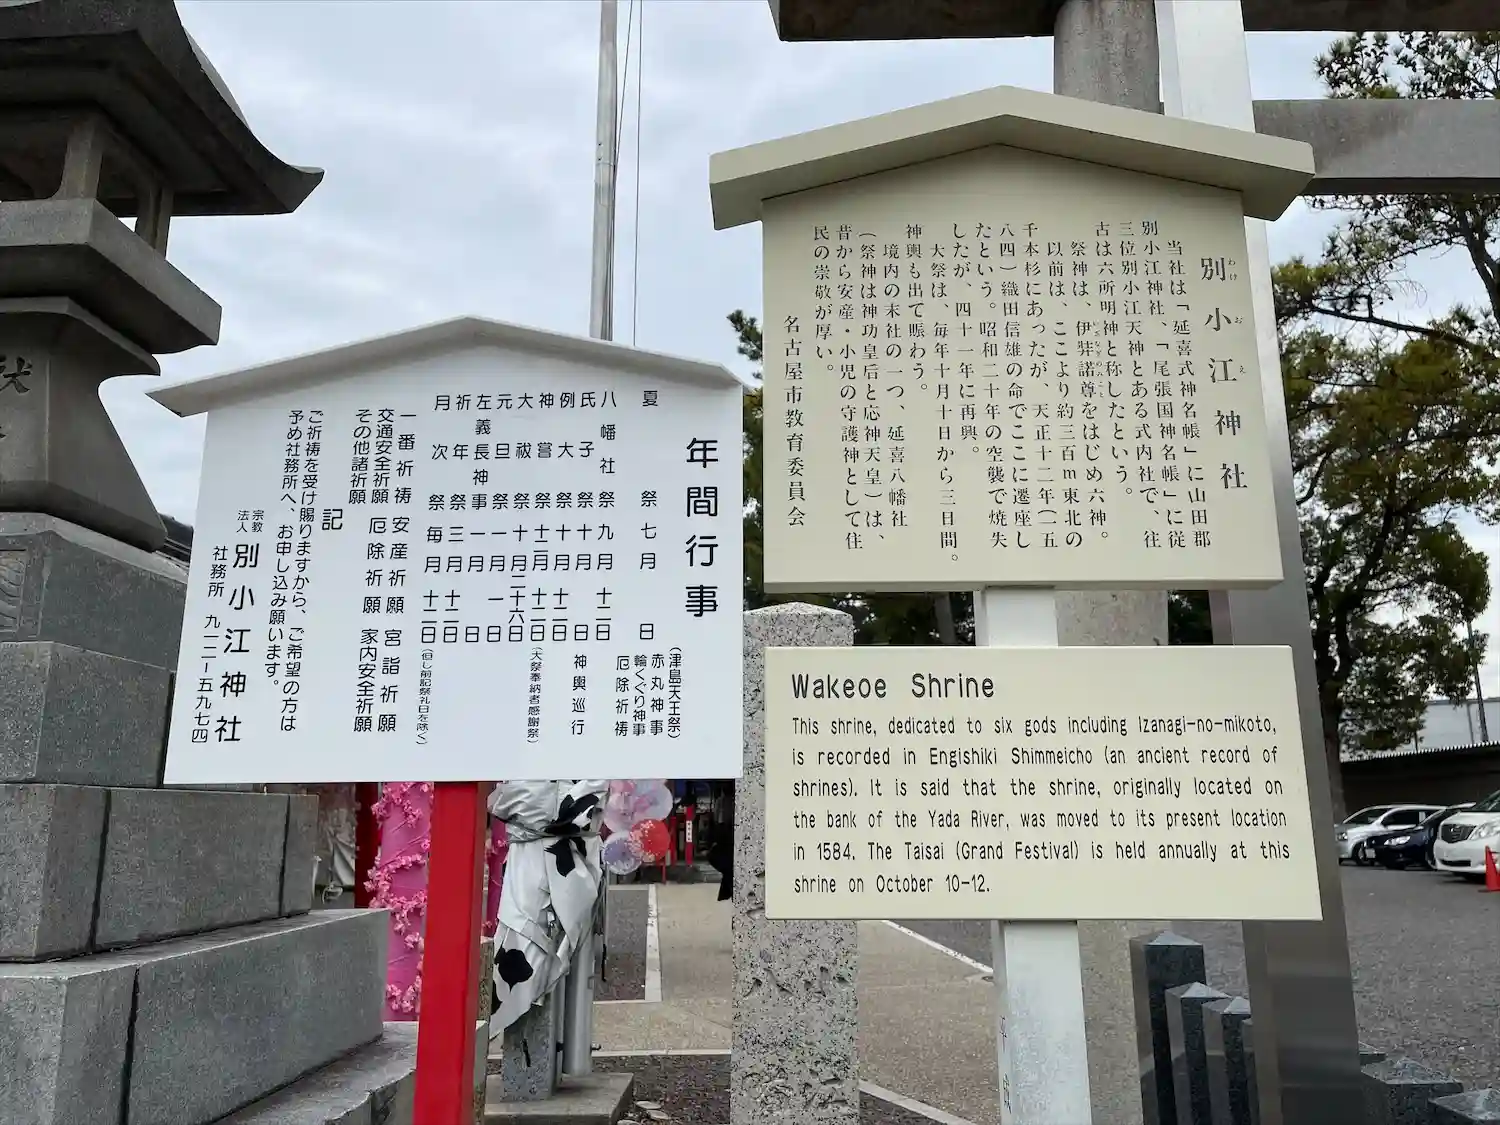 別小江神社
わけ お え
当社は「延喜式神名帳」に山田郡
別小江神社、「尾張国神名帳」に従
三位別小江天神とある式内社で、往
古は六所明神と称したという。
祭神は、伊弉諾尊をはじめ六神。
以前は、ここより約三百m東北の
千本杉にあったが、天正十二年(一五
八四)織田信雄の命でここに遷座し
たという。昭和二十年の空襲で焼失
したが、四十一年に再興。
大祭は、毎年十月十日から三日間。
神輿も出て賑わう。
境内の末社の一つ、延喜八幡社
(祭神は神功皇后と応神天皇)は、
昔から安産・小児の守護神として住
民の崇敬が厚い。
名古屋市教育委員会
Wakeoe Shrine
This shrine, dedicated to six gods including Izanagi-no-mikoto,
is recorded in Engishiki Shimmeicho (an ancient record of
shrines). It is said that the shrine, originally located on
the bank of the Yada River, was moved to its present location
in 1584. The Taisai (Grand Festival) is held annually at this
shrine on October 10-12.
年間行事
夏祭 七月 日 (津島天王祭) 赤丸神事 輪くぐり神事 厄除祈祷
八幡社祭 九月十二日
氏子祭 十月 日 神輿巡行
例大祭 十月十二日
神嘗祭 十二月十二日 (大祭奉納者感謝祭)
大祓祭 十月二十六日
元旦祭 一月一日
左義長神事 一月 日
祈年祭 三月十二日
月次祭 毎月十二日 (但し前記祭礼日を除く)
一番祈祷 安産祈願 宮詣祈願
交通安全祈願 厄除祈願 家内安全祈願
その他諸祈願
記
ご祈祷を受け賜りますから、ご希望の方は
予め社務所へ、お申し込み願います。
宗教法人 別小江神社
社務所 九一二ー五九七四